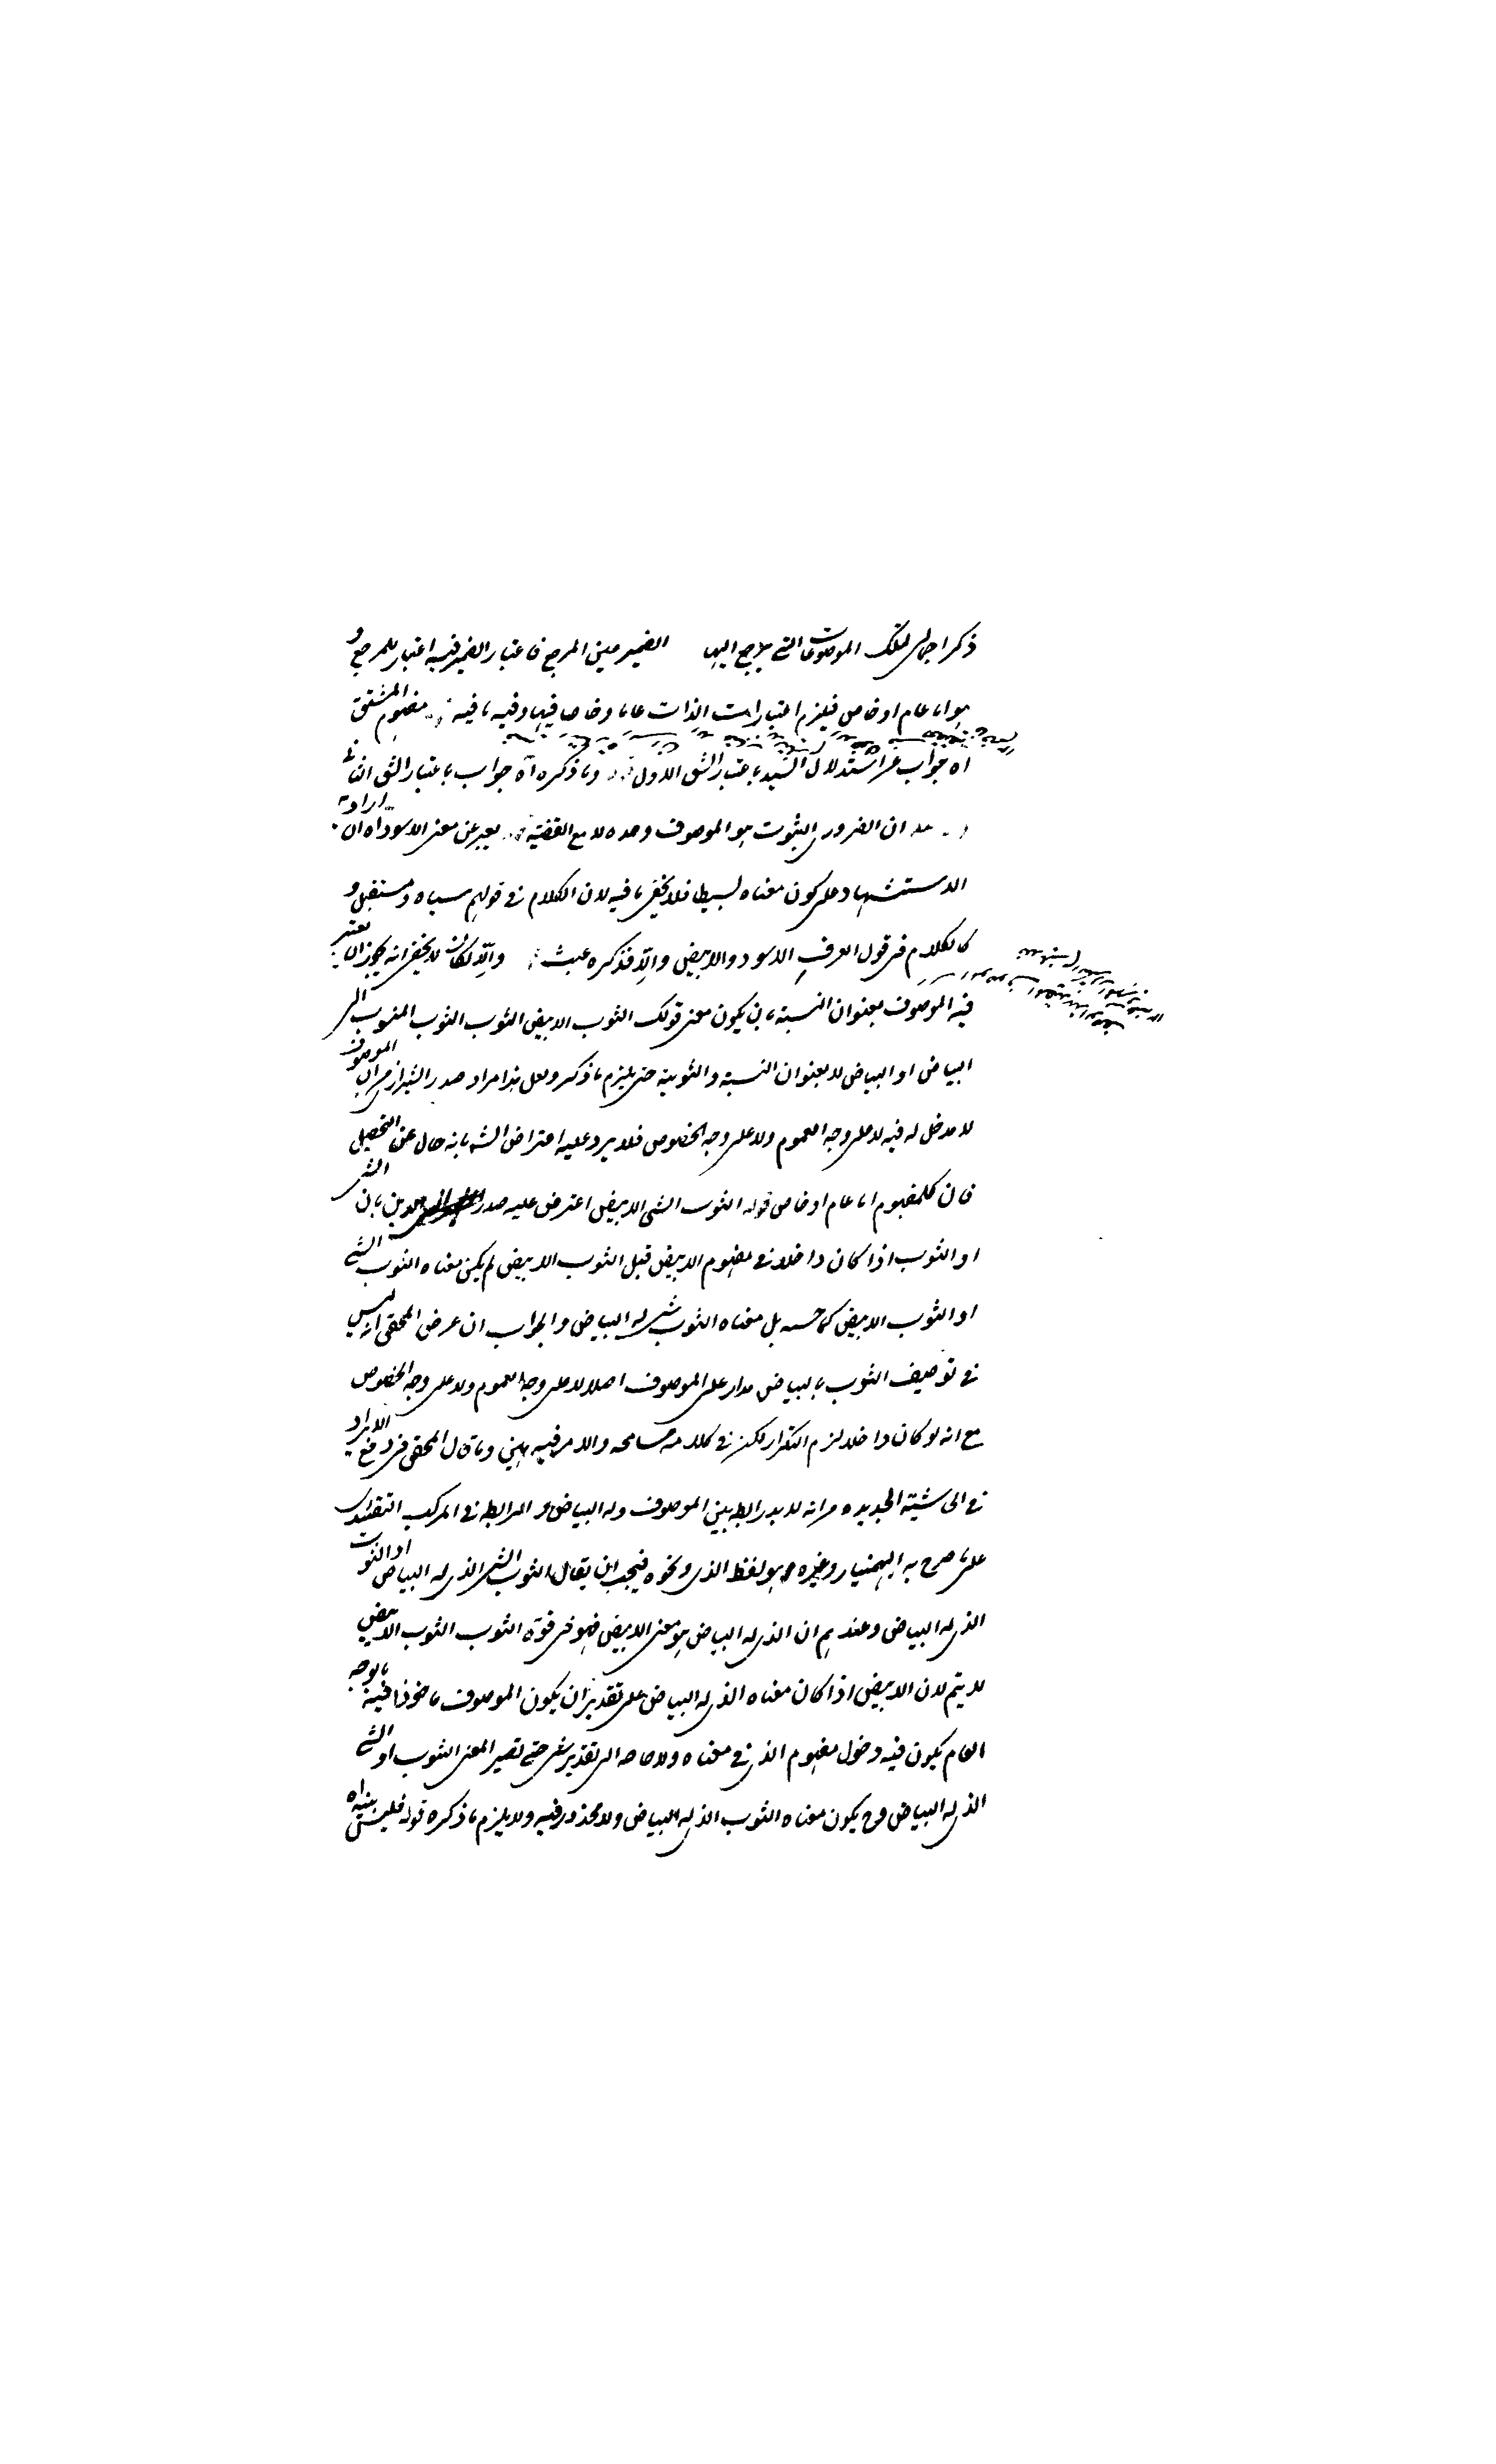 ذكر اجمالي لتلك الموصوفات التي يرجع اليها الضمير عين المرجع فاعتبار الضمير فيه اعتبار للمرجع و
هو اما عام او خاص فيلزم اعتبار الذات عاما وخاصا فيها وفيه ما فيه مفهوم المشتق
اه جواب عن استدلال السيد باعتبار الشق الاول وما ذكره اه جواب باعتبار الشق الثاني
ان الضروري الثبوت هو الموصوف وحده لا مع القضية يعبر عن معنى الاسود اه ان اراد به
الاستشهاد على كون معناه بسيطا فلا يخفى ما فيه لان الكلام في قولهم سياه و سفيد و
كالكلام في قول العرف الاسود والابيض والا فذكره عبث والا لكان لا يخفى انه يجوز ان يعتبر
فيه الموصوف بعنوان النسبة بان يكون معنى قولك الثوب الابيض الثوب الثوب المنسوب الى
البياض او البياض لا بعنوان النسبة والثوبية حتى يلزم ما ذكر ولعل هذا مراد صدر الشيرازي ان الموصوف
لا مدخل له فيه لا على وجه العموم ولا على وجه الخصوص فلا يرد عليه اعتراض الش بانه خال عن التحصيل
فان كل مفهوم اما عام او خاص قوله الثوب الشيء الابيض اعترض عليه صدر المدققين بان الشيء
او الثوب اذا كان داخلا في مفهوم الابيض قبل الثوب الابيض لم يكن معناه الثوب الشيء
او الثوب الابيض كما حسبه بل معناه الثوب شيء له البياض والجواب ان غرض المحقق انه ليس
في توصيف الثوب بالبياض مدار على الموصوف اصلا لا على وجه العموم ولا على وجه الخصوص
مع انه لو كان داخلا لزم التكرار لكن في كلامه مسامحة والامر فيه هين وما قال المحقق في دفع الايراد
في الحاشية الجديدة من انه لا بد رابط بين الموصوف وله البياض و الرابط في المركب التقييدي
على ما صرح به بهمنيار وغيره هو لفظ الذي ونحوه فيجب ان يقال الثوب الشيء الذي له البياض او الثوب
الذي له البياض وعندهم ان الذي له البياض هو معنى الابيض فهو في قوة الثوب الثوب الابيض
لا يتم لان الابيض اذا كان معناه الذي له البياض على تقدير ان يكون الموصوف ماخوذا فيه بالوجه
العام يكون فيه دخول مفهوم الذي في معناه ولا حاجة الى تقدير شيء حتى تصير المعنى الثوب او الشيء
الذي له البياض وح يكون معناه الثوب الذي له البياض ولا محذور فيه ولا يلزم ما ذكره قوله فليس بينه اه